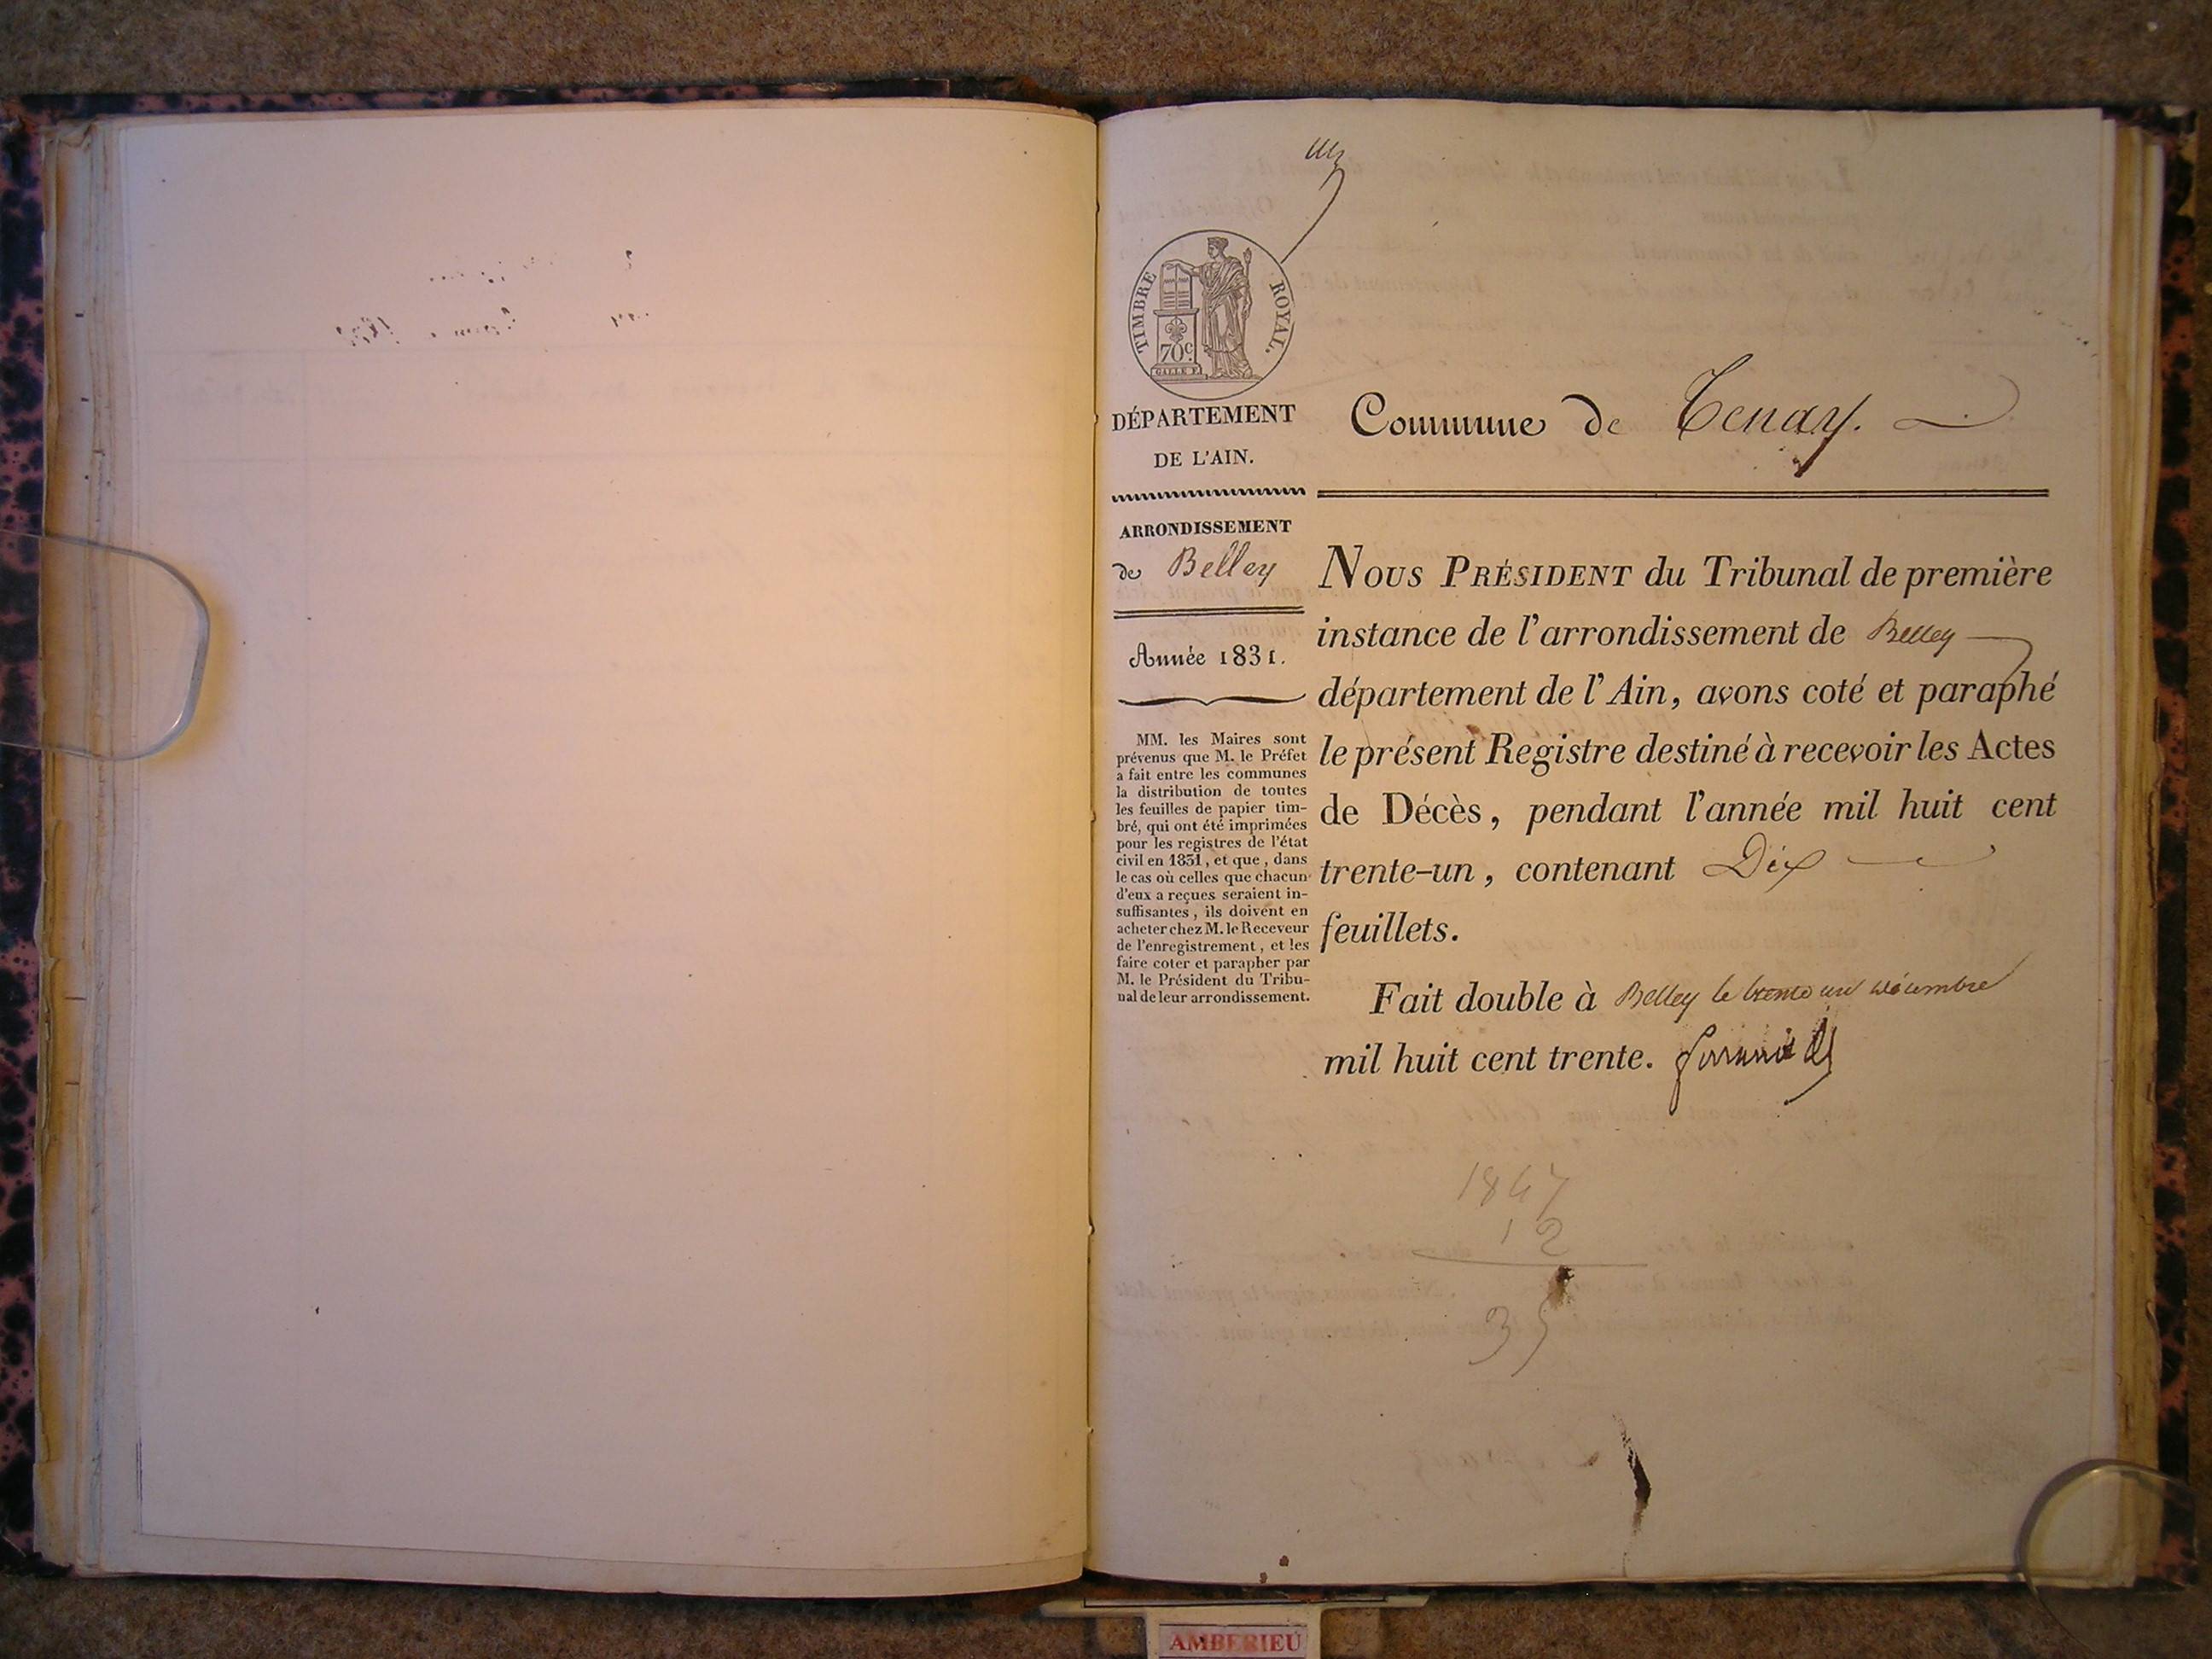 TIMBRE ROYAL.
70c.
DÉPARTEMENT
DE L'AIN.
Commune de Tenay.
ARRONDISSEMENT
de Belley
Année 1831.
MM. les Maires sont
prévenus que M. le Préfet
a fait entre les communes
la distribution de toutes
les feuilles de papier tim-
bré, qui ont été imprimées
pour les registres de l'état
civil en 1831, et que, dans
le cas où celles que chacun
d'eux a reçues seraient in-
suffisantes, ils doivent en
acheter chez M. le Receveur
de l'enregistrement, et les
faire coter et parapher par
M. le Président du Tribu-
nal de leur arrondissement.
NOUS PRÉSIDENT du Tribunal de première
instance de l'arrondissement de Belley
département de l'Ain, avons coté et paraphé
le présent Registre destiné à recevoir les Actes
de Décès, pendant l'année mil huit cent
trente-un, contenant Dix
feuillets.
Fait double à Belley le trente un décembre
mil huit cent trente.
1847
12
35
AMBERIEU